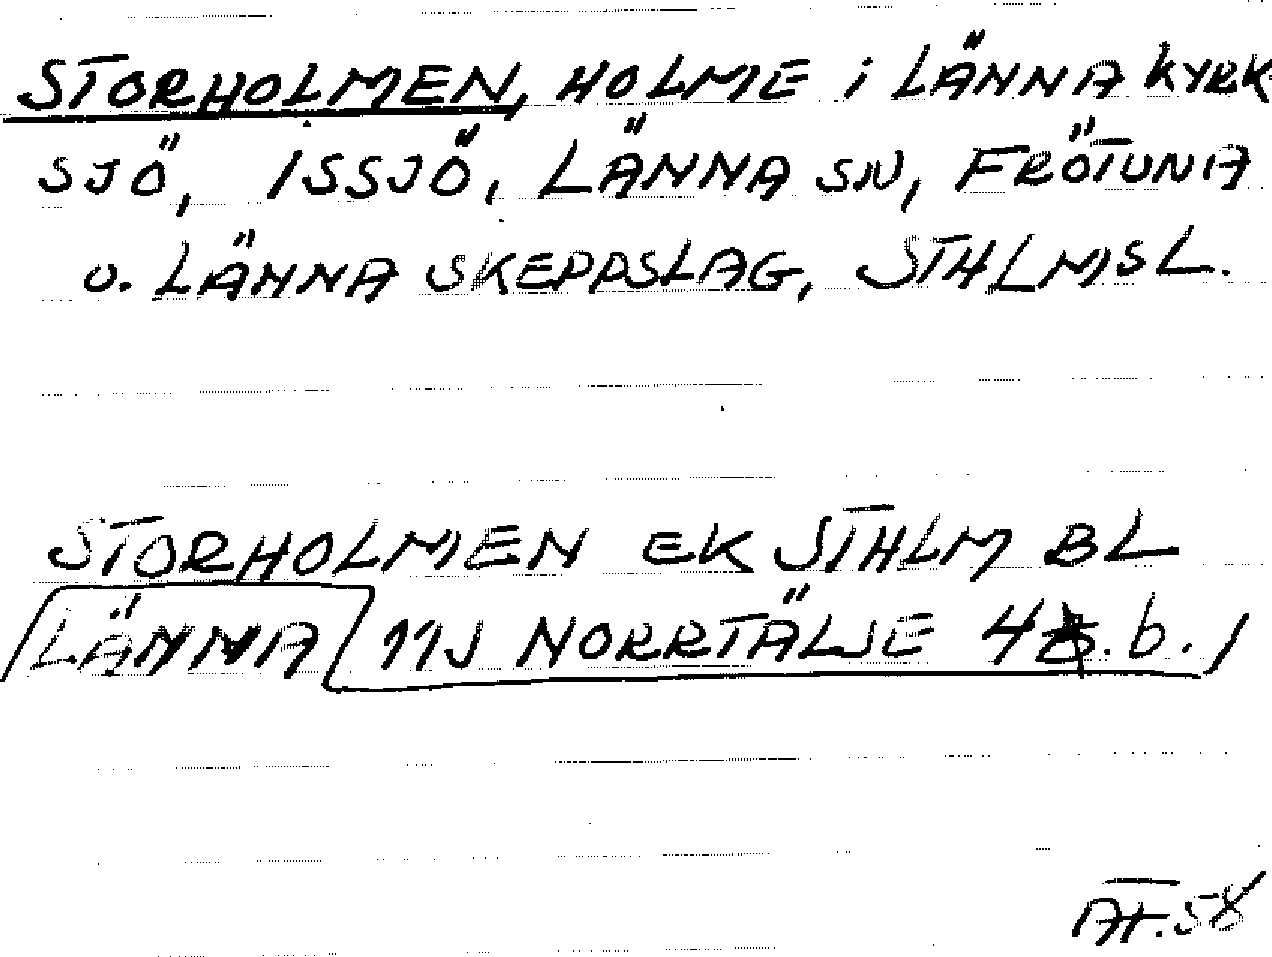 STORHOLMEN, HOLME i LÄNNA KYRK
SJÖ, ISSJÖ, LÄNNA SN, FRÖTUNA
O. LÄNNA SKEPPSLAG, STHLMSL.
STORHOLMEN EK STHLM BL
LÄNNA 11J NORRTÄLJE 4 b.